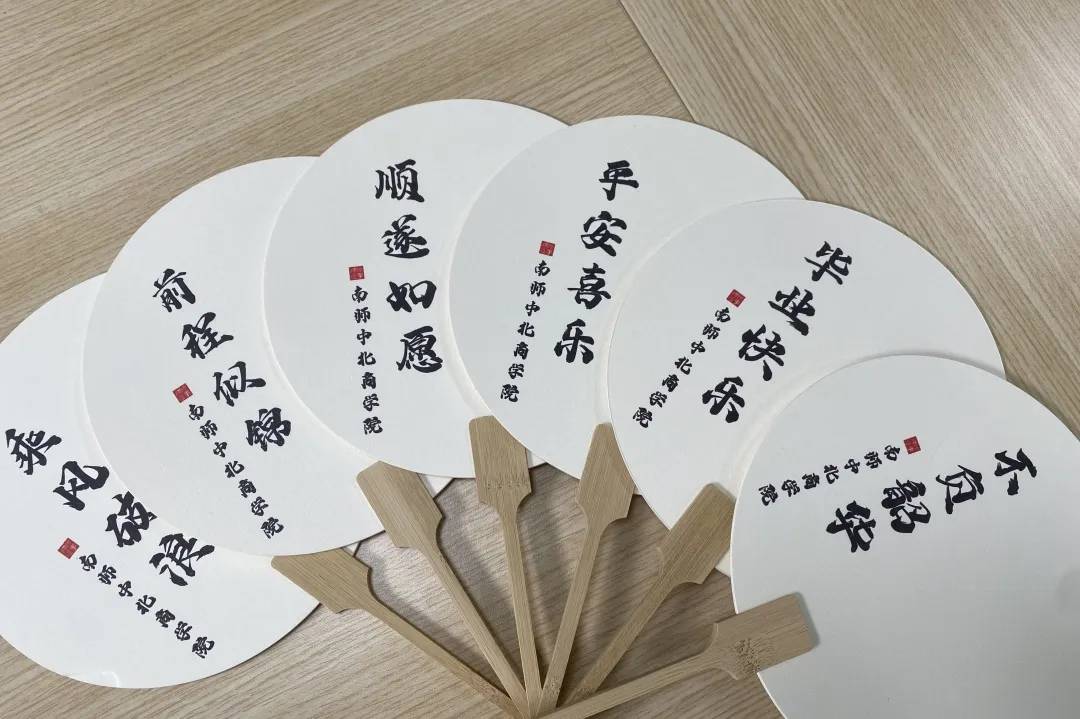 乘风破浪
南师中北商学院
前程似锦
南师中北商学院
顺遂如愿
南师中北商学院
平安喜乐
南师中北商学院
毕业快乐
南师中北商学院
不负韶华
南师中北商学院